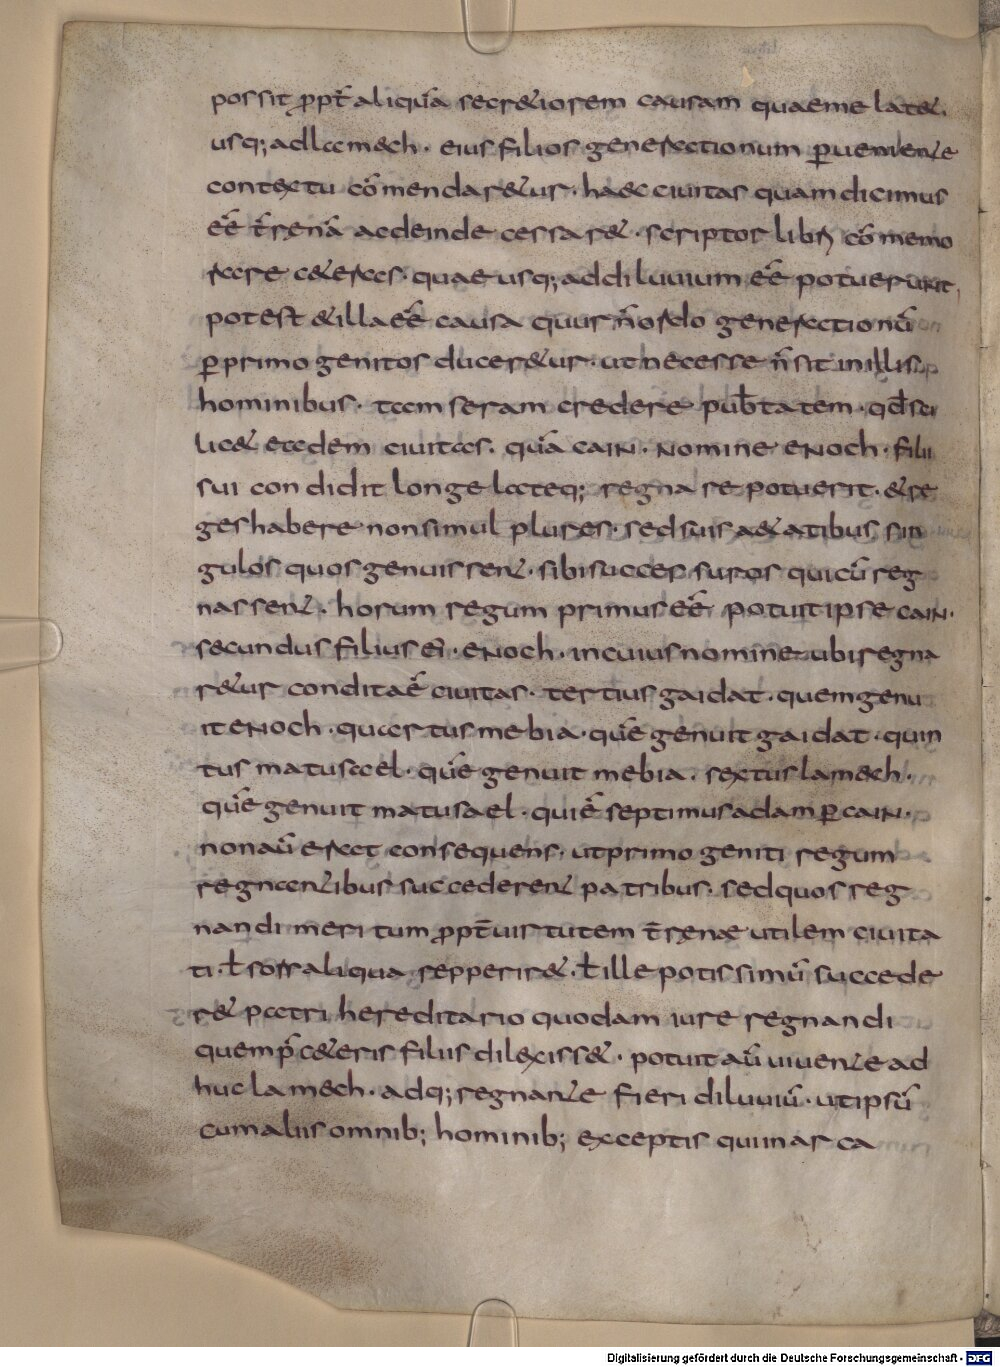 possit ꝓpt̄ aliquā secr&iorem causam quaeme lat&.
usq; adlamech. eius filios generationum ꝑueniente
contextu cōmendar&ur. haec civitas quam dicimus
eē t̄renā acdeinde cessar&. scriptor libri cōmemo
rare c&eras. quae usq; addiluvium eē potuerunt,
potest &illa eē causa quur n̄ ordo generationū
ꝑprimogenitos ducer&ur. ut necesse n̄ sit inillis
hominibus. tam seram credere pub̄tatem. qd̄ sci
lic& eadem civitas. quā cain. nomine enoch. filii
sui condidit longe lateq; regnare potuerit. &re
ges habere non simul plures. sed suis a&atibus sin
gulos quos genuissent. sibi successuros quicū reg
nassent. horum regum primus eē potuit ipse cain.
secundus filius ei. enoch. incuius nomine ubi regna
r&ur condita ē civitas. tertius gaidat. quem genu
it enoch. quartus mebia. quē genuit gaidat. quin
tus matusael. quē genuit mebia. sextus lamech.
quē genuit matusael. qui ē septimus adam ꝑ cain.
non aū erat consequens. ut primogeniti regum
regnantibus succederent patribus. sed quos reg
nandi meritum ꝓpt̄ uirtutem t̄renae utilem civita
ti. ł sors aliqua repperir&. ł ille potissimū succede
r& patri hereditario quodam iure regnandi
quem p̄ c&eris filiis dilexiss&. potuit aū vivente ad
huc lamech. adq; regnante fieri diluuiū. ut ipsū
cum aliis omnib; hominib; exceptis qui in ar ca
Digitalisierung gefördert durch die Deutsche Forschungsgemeinschaft - DFG